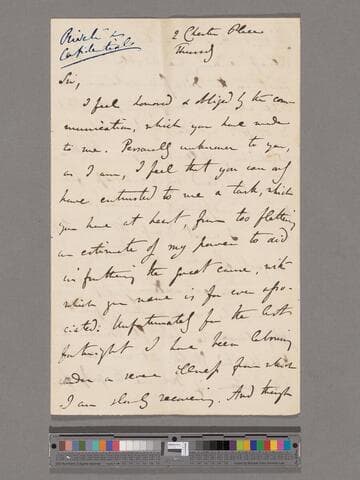 Private &
Confidential
2 Chester Place
Thursday
Sir,
I feel honored & obliged by the com-
munication, which you have made
to me. Personally unknown to you,
as I am, I feel that you can only
have entrusted to me a task, which
you have at heart, from too flattering
an estimate of my power to aid
in furthering the great cause, with
which your name is for ever asso-
ciated. Unfortunately for the last
fortnight I have been laboring
under a severe illness from which
I am slowly recovering. And though